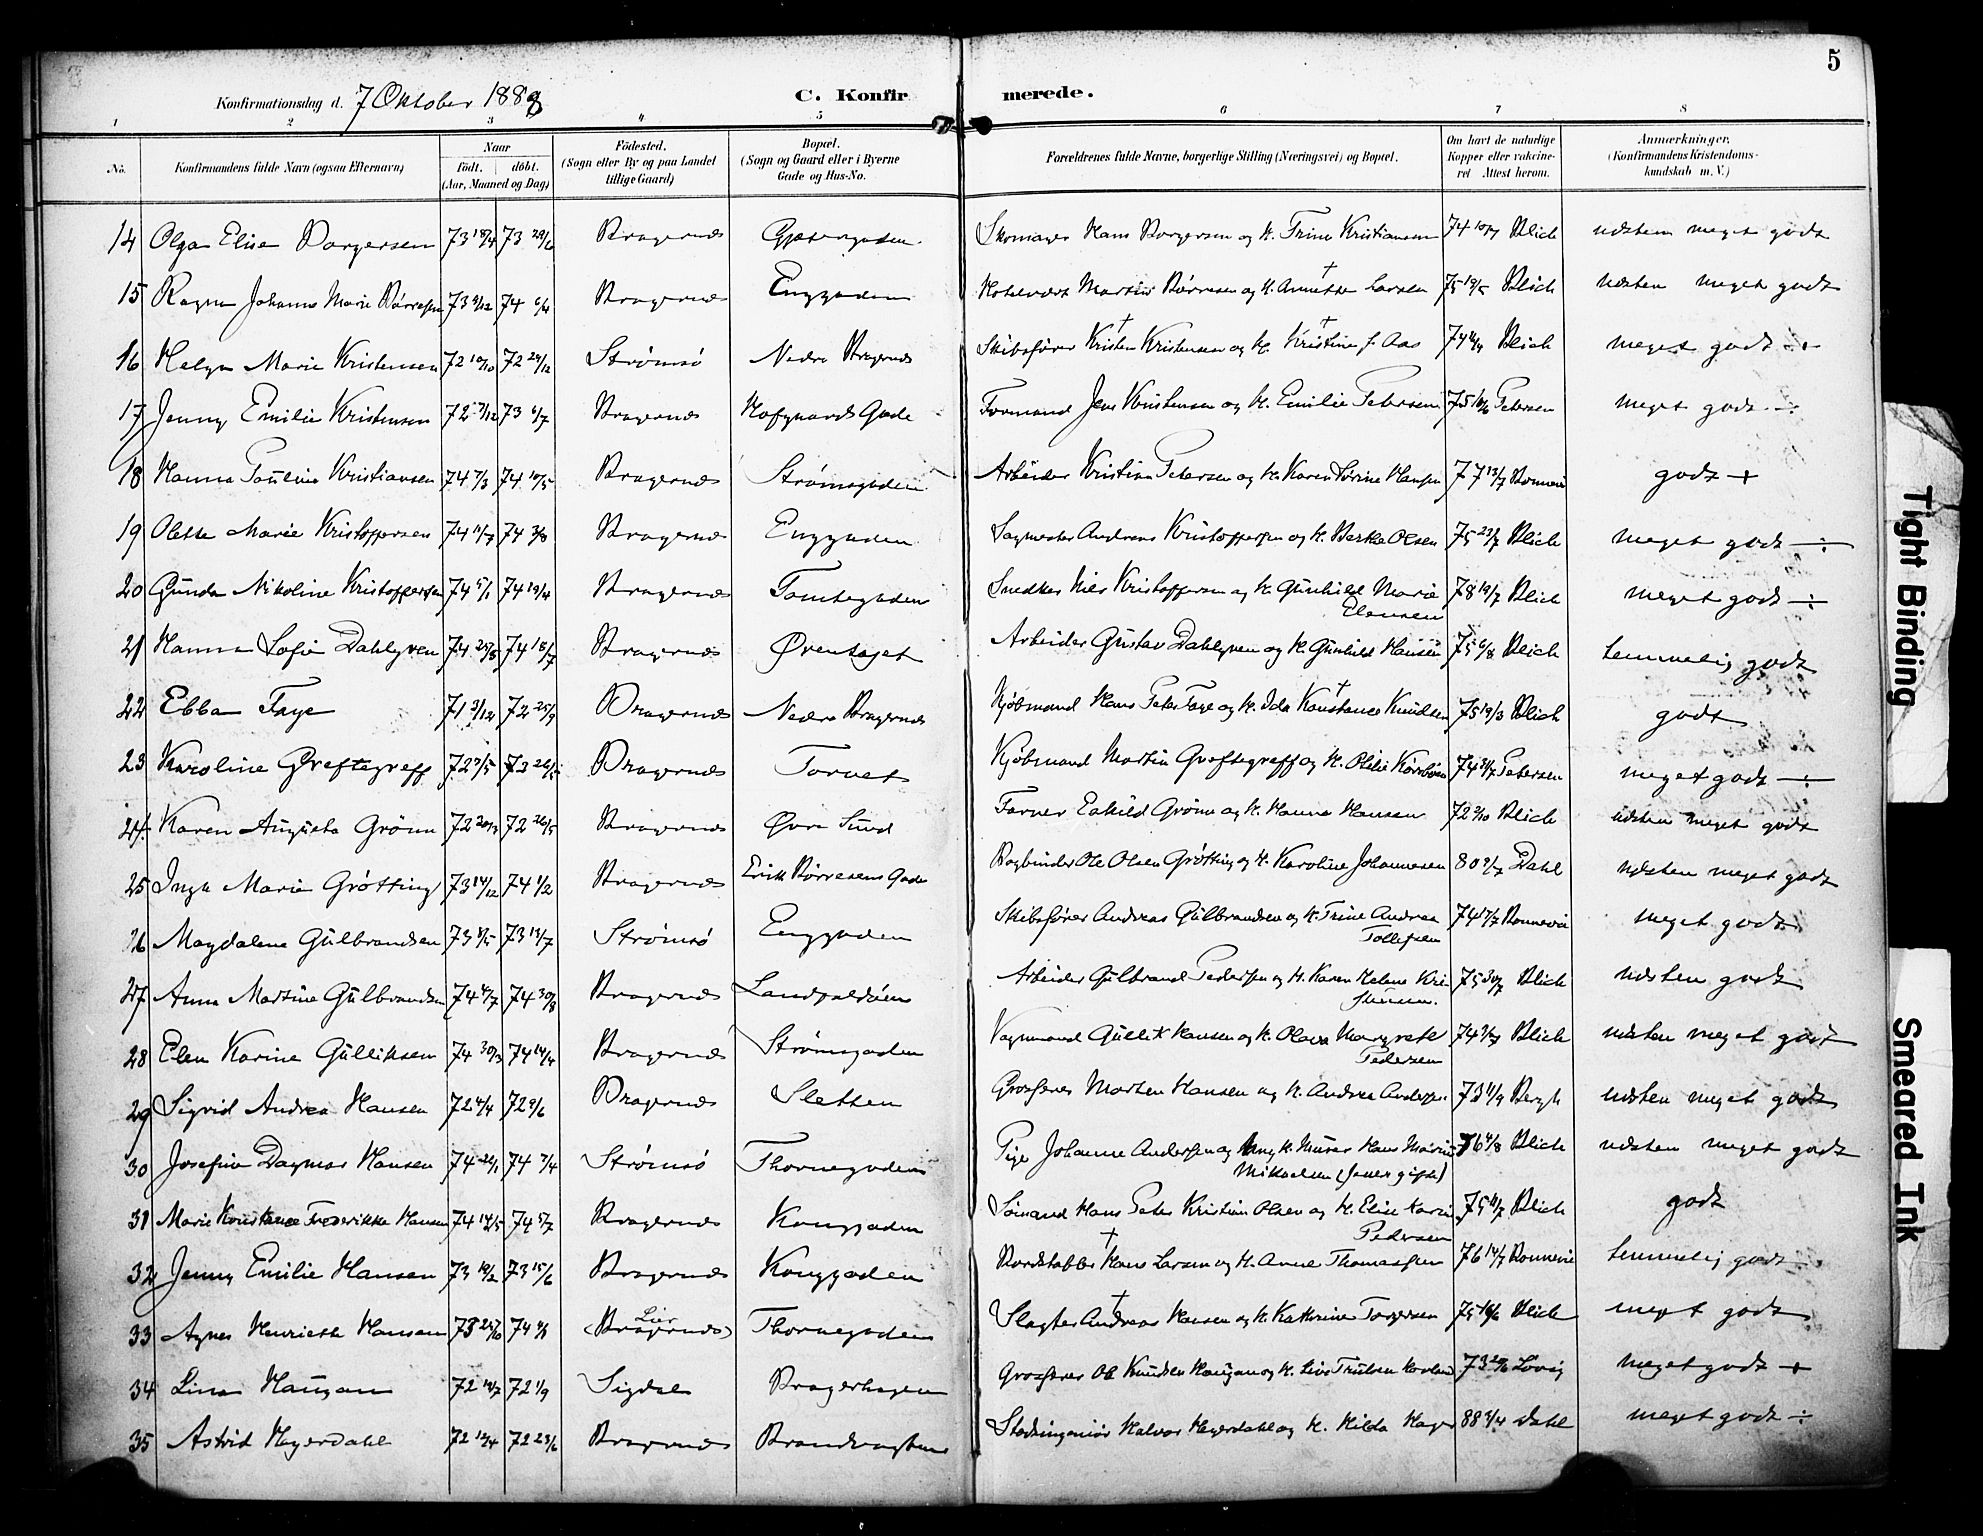 5
Konfirmationsdag d. 7 Oktober 1888
C. Konfirmerede.
1 2 3 4 5 6 7 8
No. Konfirmandens fulde Navn (ogsaa Efternavn) Naar födt. döbt. (Aar, Maaned og Dag) Födested. (Sogn eller By og paa Landet tillige Gaard) Bopæl. (Sogn og Gaard eller i Byerne Gade og Hus-No. Forældrenes fulde Navne, borgerlige Stilling (Næringsvei) og Bopæl. Om havt de naturlige Kopper eller vakcineret Attest herom. Anmærkninger, (Konfirmandens Kristendomskundskab m. V.)
14 Olga Elise Borgersen 73 18/4 73 29/6 Bragernæs Gjetergaden Skomager Hans Borgersen og H. Trine Kristiansen 74 10/7 Blich næsten meget godt
15 Ragna Johanne Marie Börresen 73 9/12 74 6/4 Bragernæs Enggaden Hotelvært Martin Börresen og H. Annette Larsen 75 19/5 Blich næsten meget godt
16 Helga Marie Kristensen 72 10/10 72 29/12 Strömsö Nedre Bragernæs Skibsförer Kristen Kristensen og H. Kristine f. Aas 74 Blich meget godt
17 Jenny Emilie Kristensen 72 /12 73 6/7 Bragernæs Hofgaards Gade Formand Jens Kristensen og H. Emilie Petersen 75 Petersen meget godt ÷
18 Hanna Pauline Kristiansen 74 7/3 74 10/5 Bragernæs Strömsgaden Arbeider Kristian Petersen og H. Karen Lovine Hansen 77 13/7 Bonnevie godt +
19 Olette Marie Kristoffersen 74 11/7 74 3/8 Bragernæs Enggaden Sagmester Andreas Kristoffersen og H. Berthe Olsen 75 23/7 Blich meget godt ÷
20 Gunda Nikoline Kristoffersen 74 5/1 74 19/4 Bragernæs Tomtegaden Snedker Nils Kristoffersen og H. Gunhild Marie Elensen 78 19/7 Blich meget godt ÷
21 Hanna Sofie Dahlgren 74 25/5 74 18/7 Bragernæs Öventaget Arbeider Gustav Dahlgren og H. Gunhild Hansen 75 6/8 Blich temmelig godt
22 Ebba Faye 71 3/12 72 25/9 Bragernæs Nedre Bragernæs Kjöbmand Hans Peter Faye og H. Ida Konstance Knudsen 75 19/3 Blich godt
23 Karoline Greftegreff 72 9/5 73 Bragernæs Torvet Kjöbmand Martin Greftegreff og H. Petersen meget godt ÷
24 Karen Augusta Grönn 72 20/3 72 26/5 Bragernæs Övre Sund Farver Eskild Grönn og H. Hanna Hansen 72 2/10 Blich næsten meget godt
25 Inga Marie Grötting 73 14/12 74 1/2 Bragernæs Erik Börresens Gade Bogbinder Ole Olsen Grötting og H. Karoline Johannesen 80 9/7 Dahl næsten meget godt
26 Magdalene Gulbrandsen 73 /5 73 13/7 Strömsö Enggaden Skibsförer Andreas Gulbrandsen og H. Trine Andrea Tollefsen 74 Bonnevie meget godt
27 Anna Martine Gulbrandsen 74 4/7 74 30/8 Bragernæs Landfaldöen Arbeider Gulbrand Pedersen og H. Karen Helene Kristensen. 75 30/7 Blich næsten godt
28 Elen Karine Gulliksen 74 30/3 74 14/4 Bragernæs Strömsgaden Vognmand Gullik Hansen og H. Olava Margrete Pedersen 74 Blich næsten meget godt
29 Sigrid Andrea Hansen 72 4/4 72 9/6 Bragernæs Sletten Grosserer Morten Hansen og H. Andrea Andersen 73 11/9 Bergh næsten meget godt
30 Josefine Dagmar Hansen 74 22/1 74 7/4 Strömsö Thornegaden Pige Johanne Andersen og Ungk. Murer Hans Marius Mikaelsen (senere gifte) 76 4/8 Blich næsten meget godt
31 Marie Konstance Frederikke Hansen 74 14/5 74 5/7 Bragernæs Konggaden Sömand Hans Peter Kristian Olsen og H. Elise Karin Pedersen 75 Blich godt
32 Jenny Emilie Hansen 73 19/2 73 15/6 Bragernæs Konggaden Bordstabler Hans Larsen og H. Anne Thomassen 76 14/7 Bonnevie temmelig godt
33 Agnes Henriette Hansen 73 74 Lier (Bragernæs) Thornegaden Slagter Andreas Hansen og H. Kathrine Torgersen 75 Blich meget godt
34 Lina Haugan 72 72 1/9 Sigdal Bragerhagen Grosserer Ol Knudsen Haugan og H. Live Truelsen 73 Lövig meget godt +
35 Astrid Heyerdahl 72 12/4 72 23/6 Bragernæs Brandvagten Stadsingeniör Halvor Heyerdahl og H. Hilda Hager 88 3/4 Dahl meget godt ÷
Tight Binding
Smeared Ink